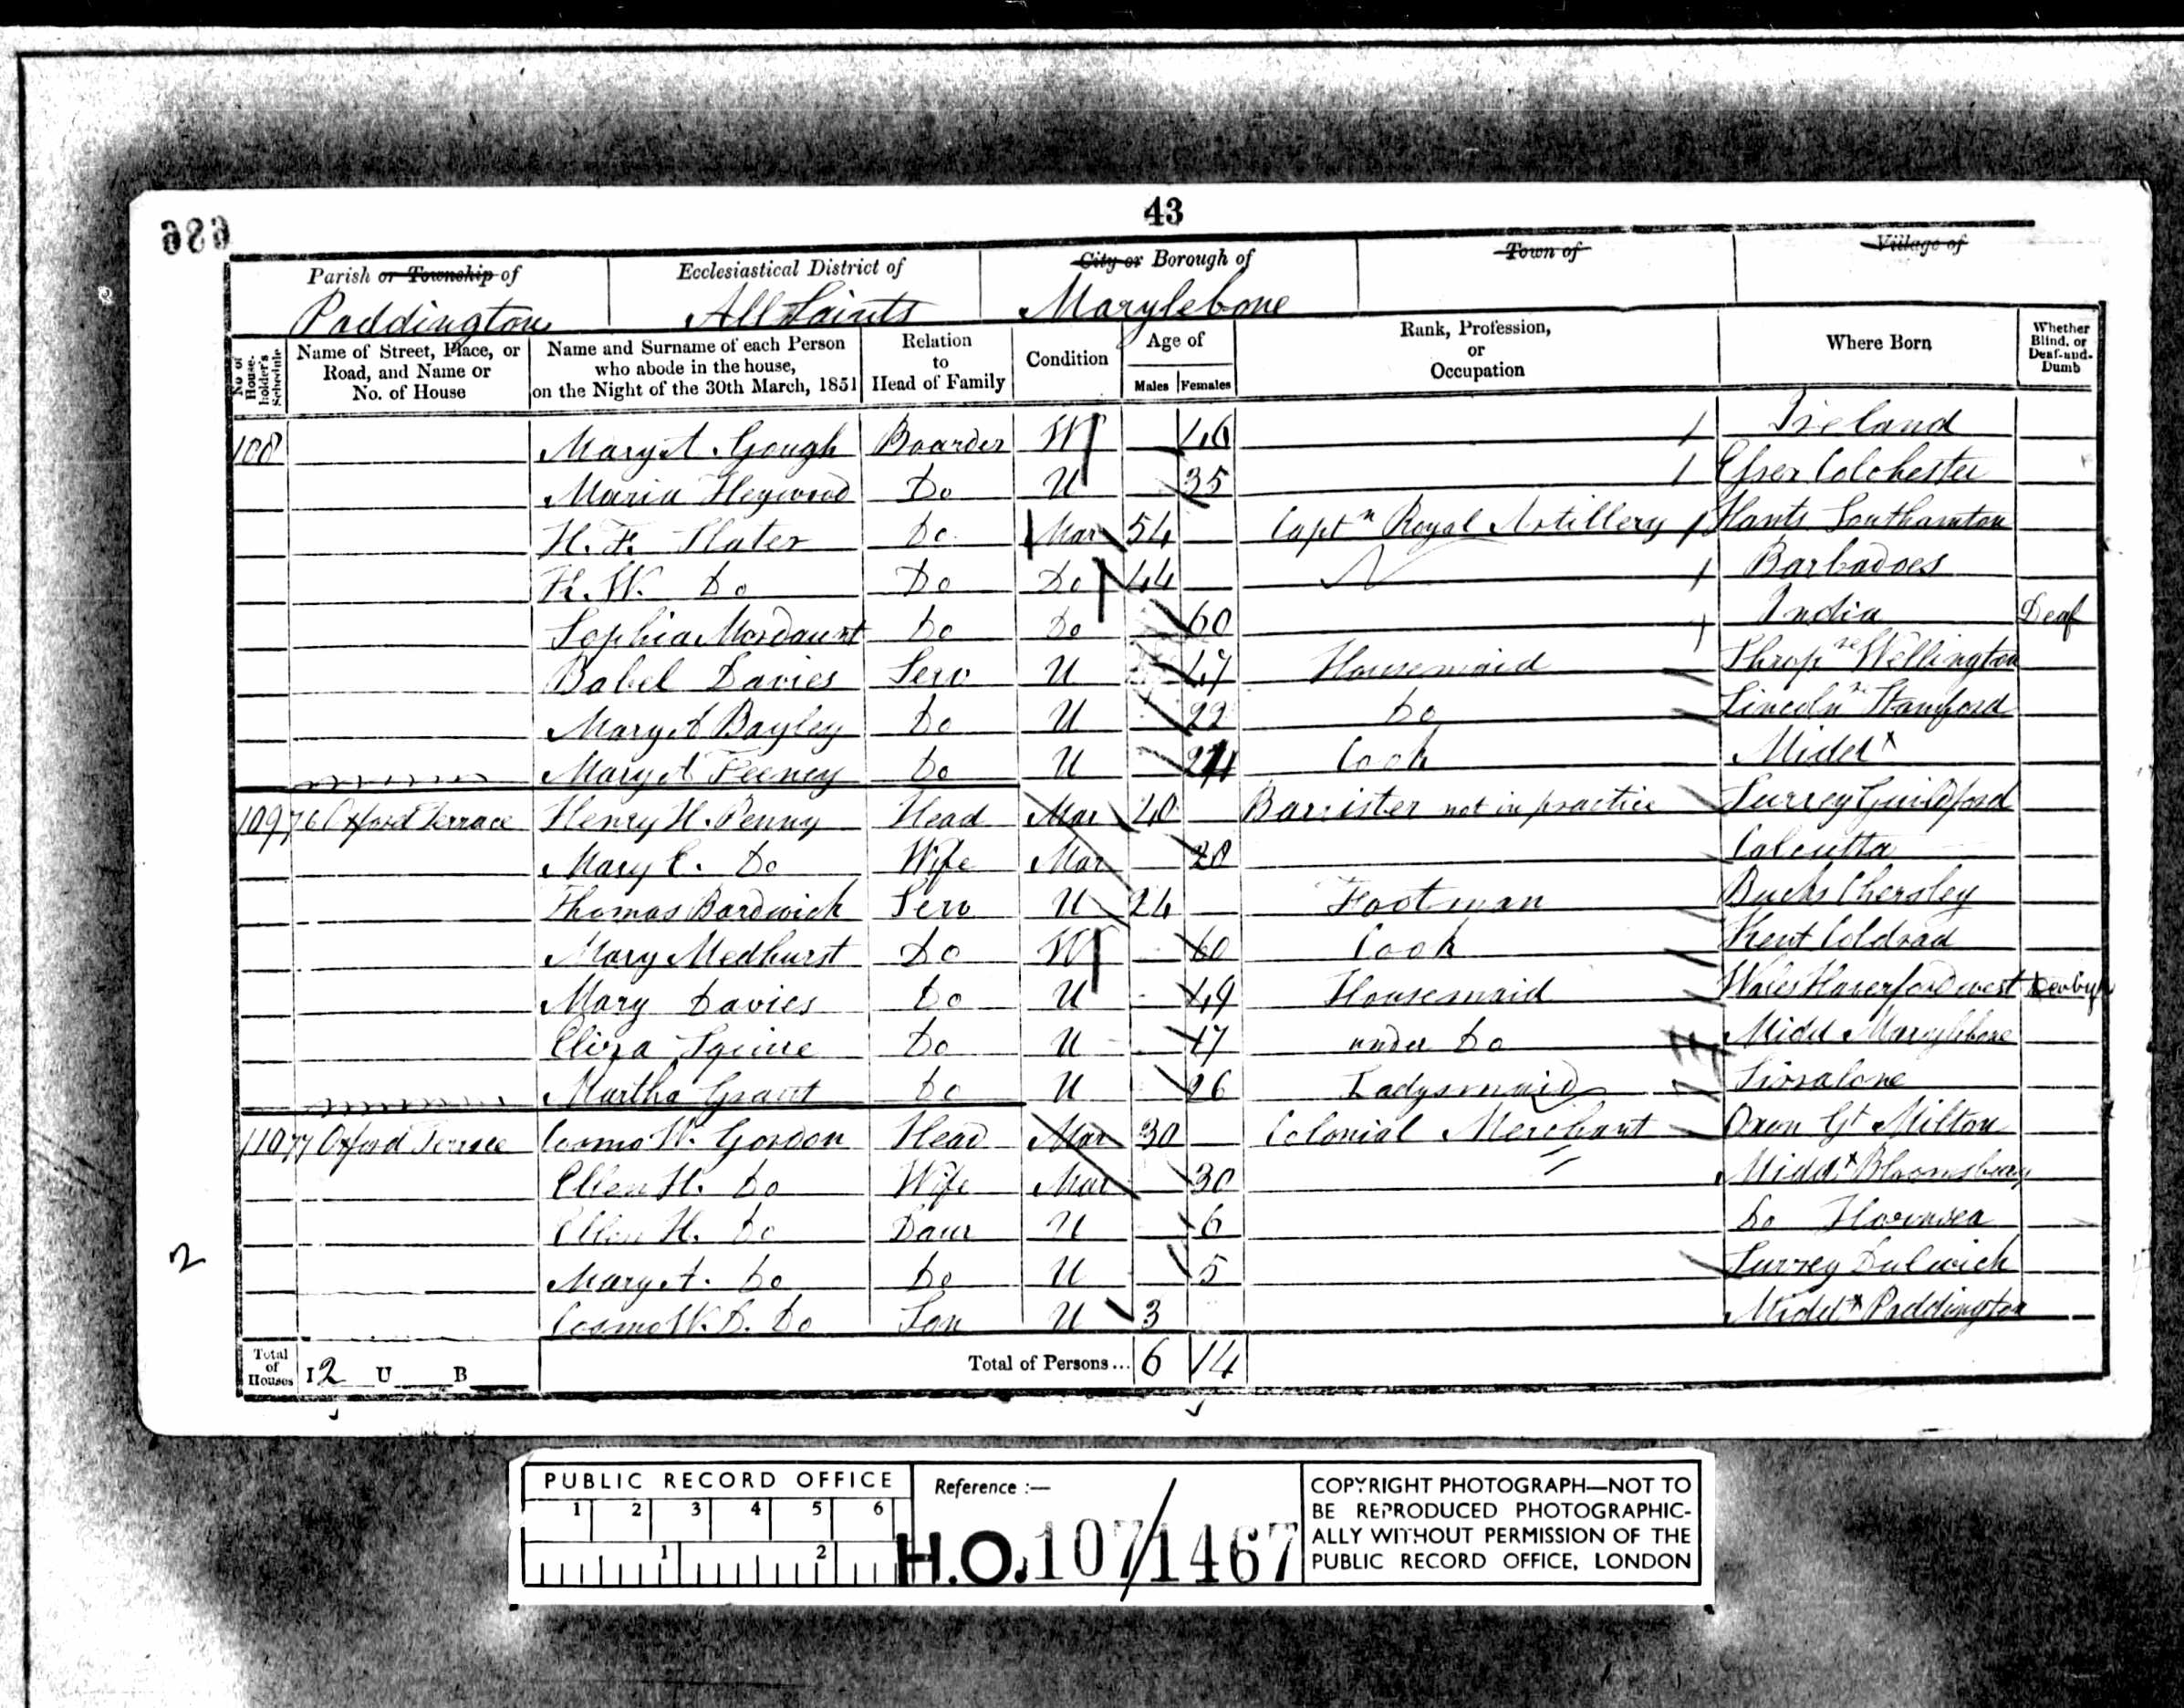 43
Parish or Township of Ecclesiastical District of City or Borough of Town of Village of
Paddington All Saints Marylebone
No of House-holder's Schedule
Name of Street, Place, or Road, and Name or No. of House
Name and Surname of each Person who abode in the house, on the Night of the 30th March, 1851
Relation to Head of Family
Condition
Age of Males Females
Rank, Profession, or Occupation
Where Born
Whether Blind, or Deaf-and-Dumb
108 Mary A. Gough Boarder W 46 Ireland
Maria Heywood Do U 35 Essex Colchester
H. F. Slater Do Mar 54 Captn Royal Artillery Hants Southamton
W. Do Do Do 44 Barbadoes
Sophia Mordaunt Do Do 60 India Deaf
Babel Davies Serv U 47 Housemaid Shrop nr Wellington
Mary A Bayley Do U 22 Do Lincoln nr Stamford
Mary A Feeney Do U Cook Middx
109 76 Oxford Terrace Henry H. Penny Head Mar 40 Barrister not in practice Surrey Guildford
Mary E. Do Wife Mar 28 Calcutta
Thomas Bardwick Serv U 24 Footman Bucks Chersley
Mary Medhurst Do W 60 Cook Kent Coldred
Mary Davies Do U 49 Housemaid Wales Haverfordwest
Eliza Squire Do U 17 under Do Midd Marylebone
Martha Grant Do U 26 Ladysmaid
110 77 Oxford Terrace Cosmo W. Gordon Head Mar 30 Colonial Merchant Oxon Gt Milton
Ellen H. Do Wife Mar 30 Middx Bloomsbury
Ellen H. Do Daur U 6 Do
Mary A. Do Do U 5 Surrey Dulwich
2
Cosmo W. D. Do Son U 3 Middx Paddington
Total of Houses I 2 U B Total of Persons... 6 14
PUBLIC RECORD OFFICE
1 2 3 4 5 6
1 2
Reference :—
H.O. 107/1467
COPYRIGHT PHOTOGRAPH—NOT TO
BE REPRODUCED PHOTOGRAPHIC-
ALLY WITHOUT PERMISSION OF THE
PUBLIC RECORD OFFICE, LONDON